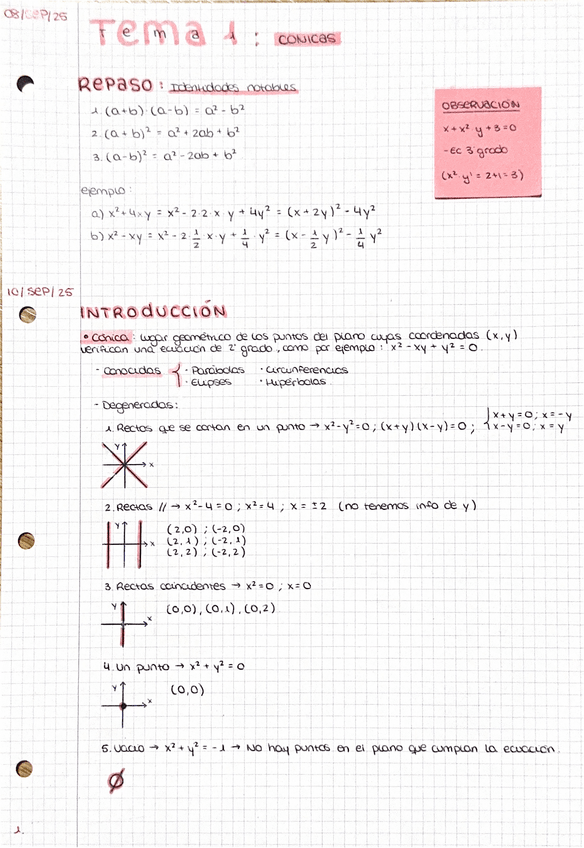 08/SEP/25
Tema 1: CONICAS
REPASO: Identidades notables
1. (a+b)·(a-b) = a² - b²
2. (a+b)² = a² + 2ab + b²
3. (a-b)² = a² - 2ab + b²
OBSERVACIÓN
x + x² y + 3 = 0
- Ec 3º grado
(x² y¹ = 2+1 = 3)
ejemplo:
a) x² + 4xy = x² - 2·2·x·y + 4y² = (x + 2y)² - 4y²
b) x² - xy = x² - 2·1/2 x·y + 1/4·y² = (x - 1/2 y)² - 1/4 y²
10/SEP/25
INTRODUCCIÓN
• Cónica: lugar geométrico de los puntos del plano cuyas coordenadas (x,y)
verifican una ecuación de 2º grado, como por ejemplo: x² - xy + y² = 0.
- Conocidas { · Parábolas · Circunferencias
· Elipses · Hipérbolas
- Degeneradas:
1. Rectas que se cortan en un punto → x² - y² = 0; (x+y)(x-y) = 0; { x+y=0; x=-y
x-y=0; x=y
y
x
2. Rectas // → x² - 4 = 0; x² = 4; x = ±2 (no tenemos info de y)
y
x
(2,0); (-2,0)
(2,1); (-2,1)
(2,2); (-2,2)
3. Rectas coincidentes → x² = 0; x = 0
y
x
(0,0), (0,1), (0,2)
4. Un punto → x² + y² = 0
y
x
(0,0)
5. Vacío → x² + y² = -1 → No hay puntos en el plano que cumplan la ecuación.
Ø
1.